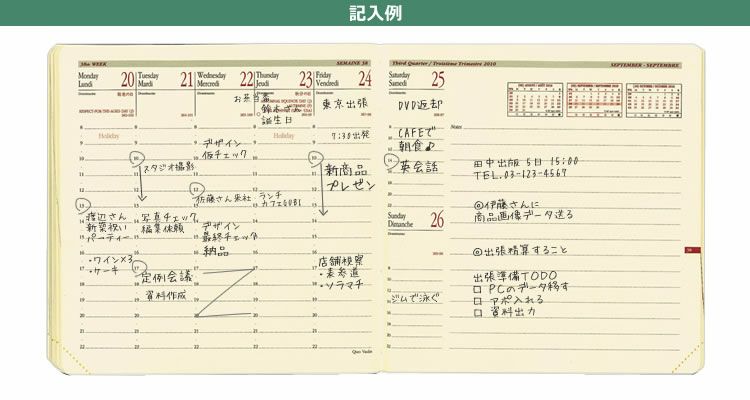 記入例
38th WEEK
SEMAINE 38
Third Quarter / Troisième Trimestre 2010
SEPTEMBER - SEPTEMBRE
Monday
Lundi
20
Tuesday
Mardi
21
Wednesday
Mercredi
22
Thursday
Jeudi
23
Friday
Vendredi
24
Saturday
Samedi
25
Holiday
13
渡辺さん
新築祝い
パーティー
・ワイン×3
・ケーキ
10
スタジオ撮影
写真チェック
編集依頼
17
定例会議
資料作成
お弁当番
デザイン
仮チェック
12
佐藤さん来社
デザイン
最終チェック
納品
鈴木さん
誕生日
Holiday
ランチ
カフェGUBI
東京出張
7:30出発
10
新商品
プレゼン
店舗視察
・表参道
・ソラマチ
DVD返却
CAFEで
朝食♪
14
英会話
Sunday
Dimanche
26
ジムで泳ぐ
Notes
田中出版 5日 15:00
TEL.03-123-4567
@伊藤さんに
商品画像データ送る
@出張精算すること
出張準備TODO
□ PCのデータ移す
□ アポ入れる
□ 資料出力
38
Quo Vadis